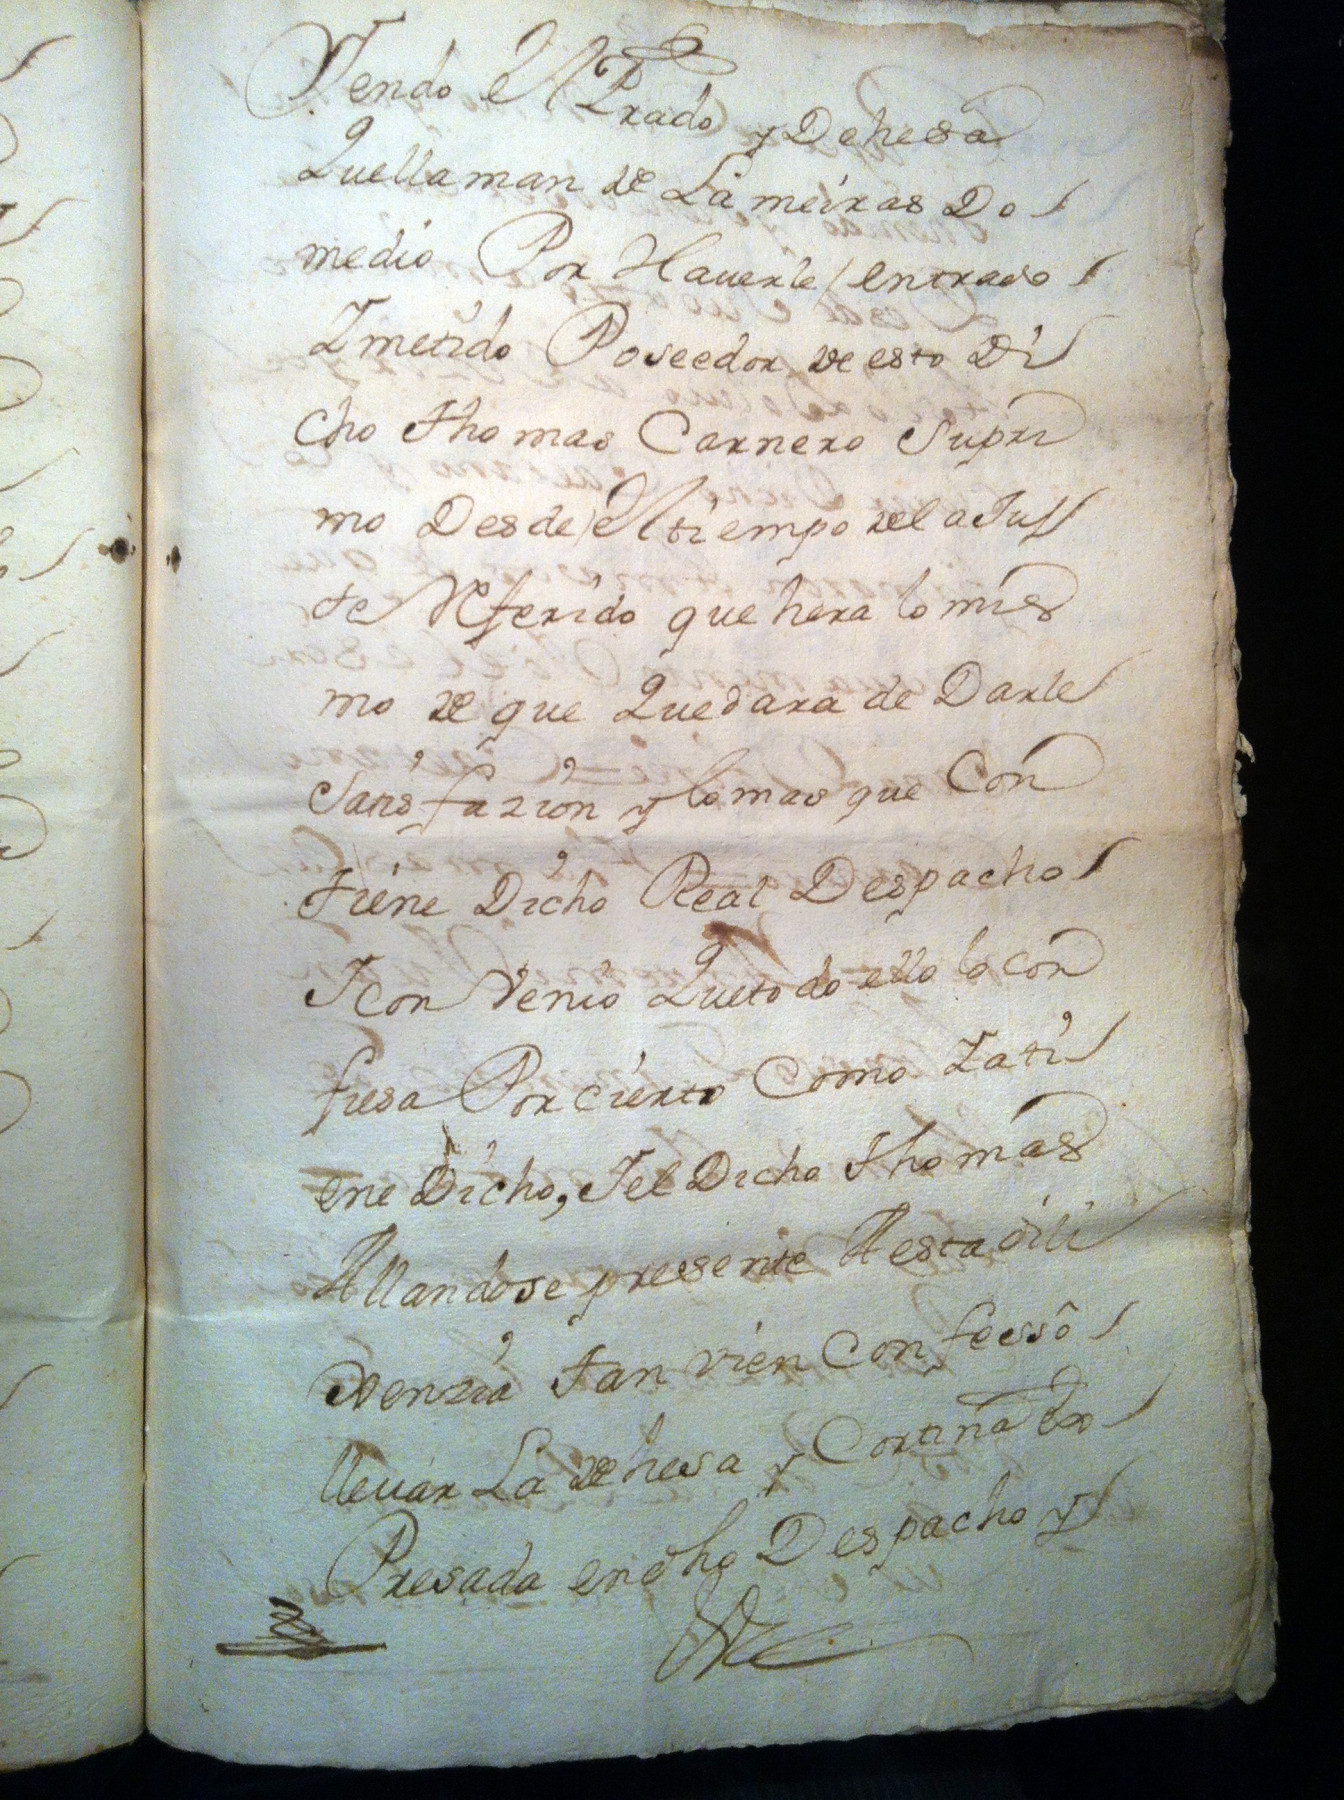 Yendo el Prado y Dehesa
Quellaman de Lameiras Do
medio Por Hauerle entrado
Y metido Poseedor de esto Di
cho Thomas Carnero Supri
mo Desde el tiempo del a Jus
te Referido que hera lo mis
mo de que Quedara de Darle
Satisfazion y lo mas que Con
tiene Dicho Real Despacho
Y con Venio Que todo ello lo con
fiesa Por cierto Como Lo ti
ene Dicho, Y el Dicho Thomas
Allandose presente A esta dili
xenzia tan vien Confessô
lleuar La dehesa y Cortina Ex
Presada en dho Despacho y